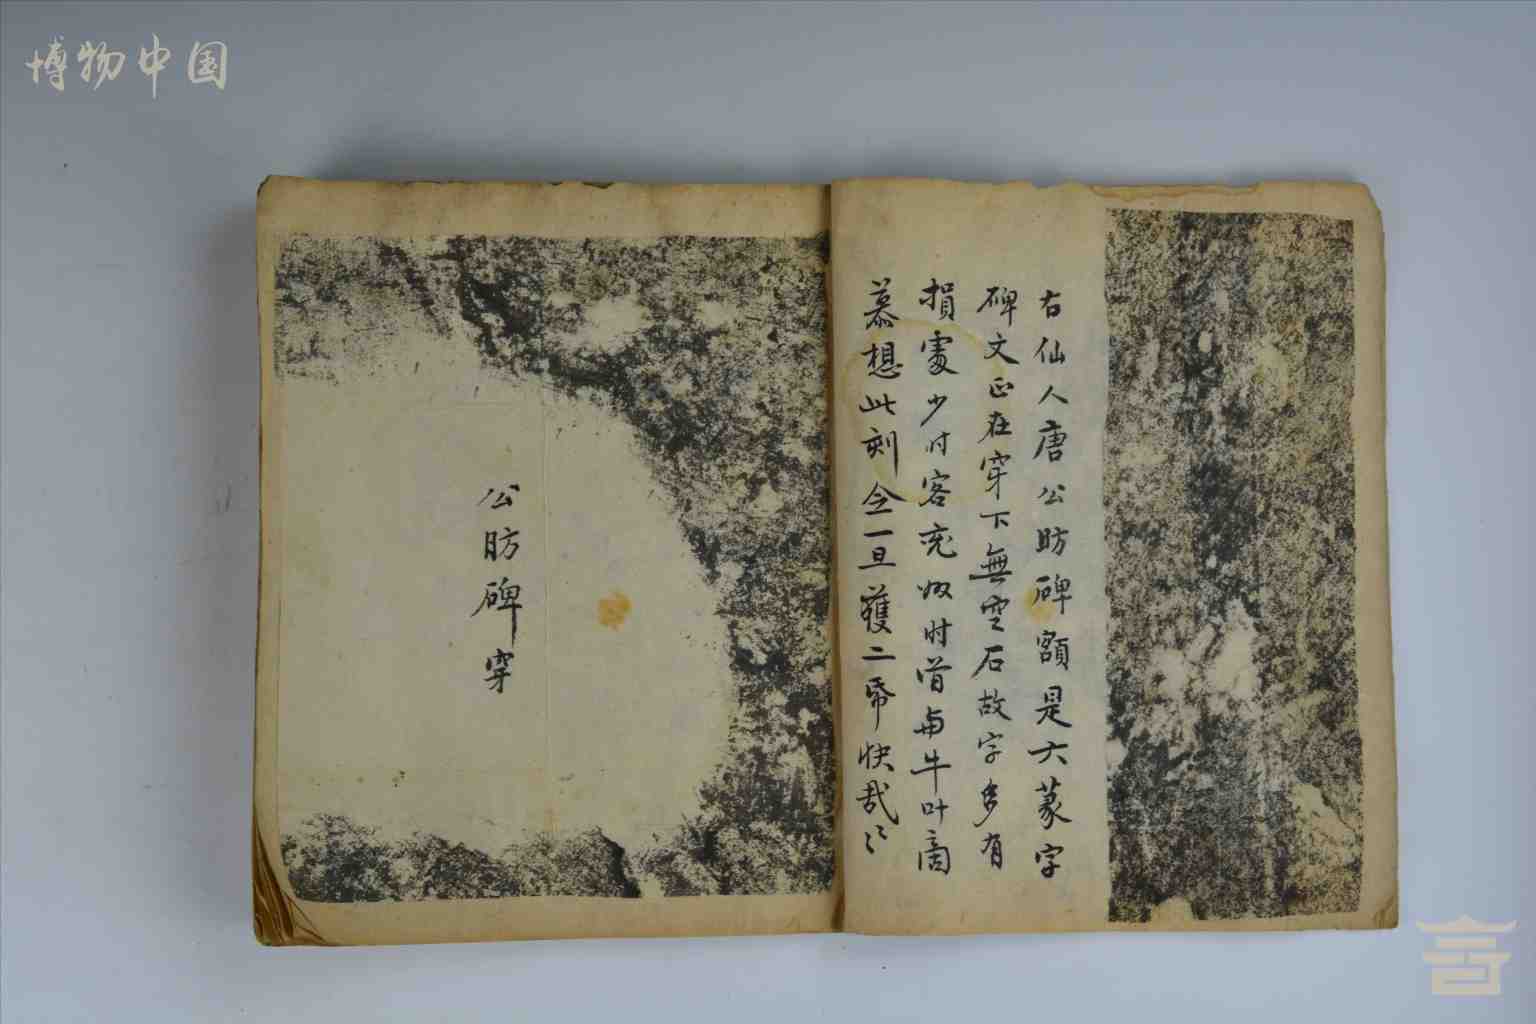 博物中国
右仙人唐公昉碑額是大篆字
碑文正在穿下無空石故字多有
損處少时客兖
时
与牛叶
慕想此刻今一旦獲二帋快哉〻
公昉碑穿